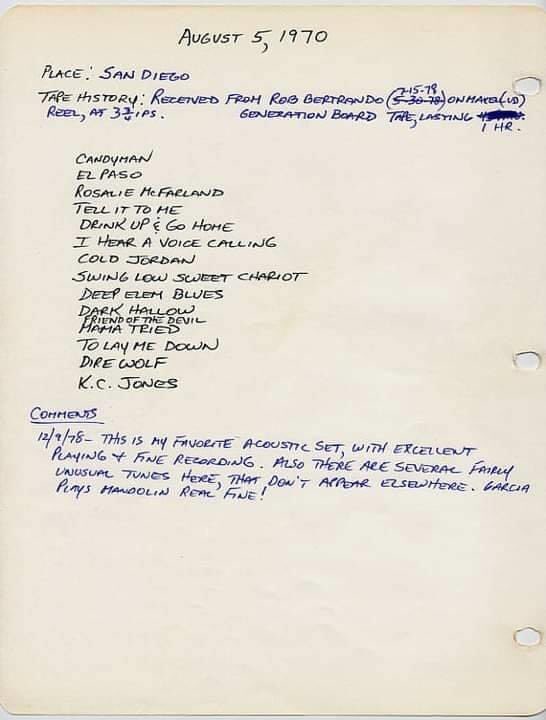 AUGUST 5, 1970
PLACE: SAN DIEGO
7-15-78
TAPE HISTORY: RECEIVED FROM ROB BERTRANDO (5-30-78) ON MAXELL (UD)
REEL, AT 3 3/4 IPS. GENERATION BOARD TAPE, LASTING
1 HR.
CANDYMAN
EL PASO
ROSALIE MCFARLAND
TELL IT TO ME
DRINK UP & GO HOME
I HEAR A VOICE CALLING
COLD JORDAN
SWING LOW SWEET CHARIOT
DEEP ELEM BLUES
DARK HALLOW
FRIEND OF THE DEVIL
MAMA TRIED
TO LAY ME DOWN
DIRE WOLF
K.C. JONES
COMMENTS
12/9/78- THIS IS MY FAVORITE ACOUSTIC SET, WITH EXCELLENT
PLAYING & FINE RECORDING. ALSO THERE ARE SEVERAL FAIRLY
UNUSUAL TUNES HERE, THAT DON'T APPEAR ELSEWHERE. GARCIA
PLAYS MANDOLIN REAL FINE!